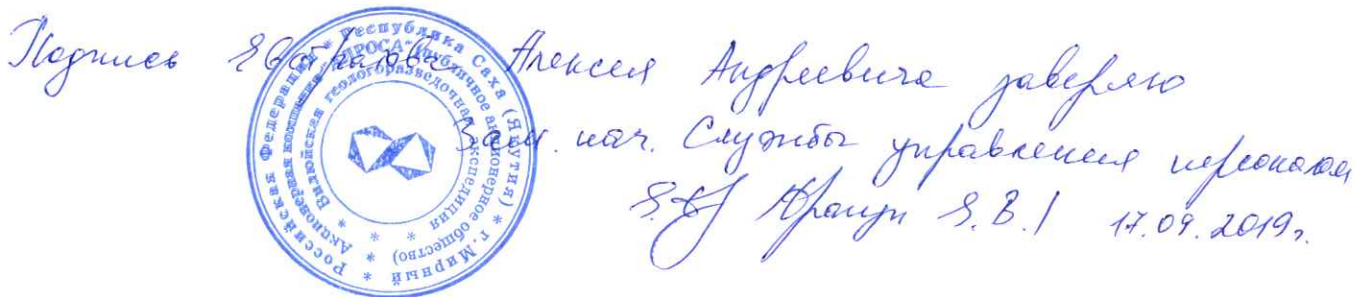 Подпись Евстратова Алексея Андреевича заверяю
Зам. нач. Службы управления персоналом
17.09.2019г.
* Российская Федерация * Республика Саха (Якутия) * г. Мирный
* Акционерная компания "АЛРОСА" (публичное акционерное общество)
* Вилюйская геологоразведочная экспедиция *